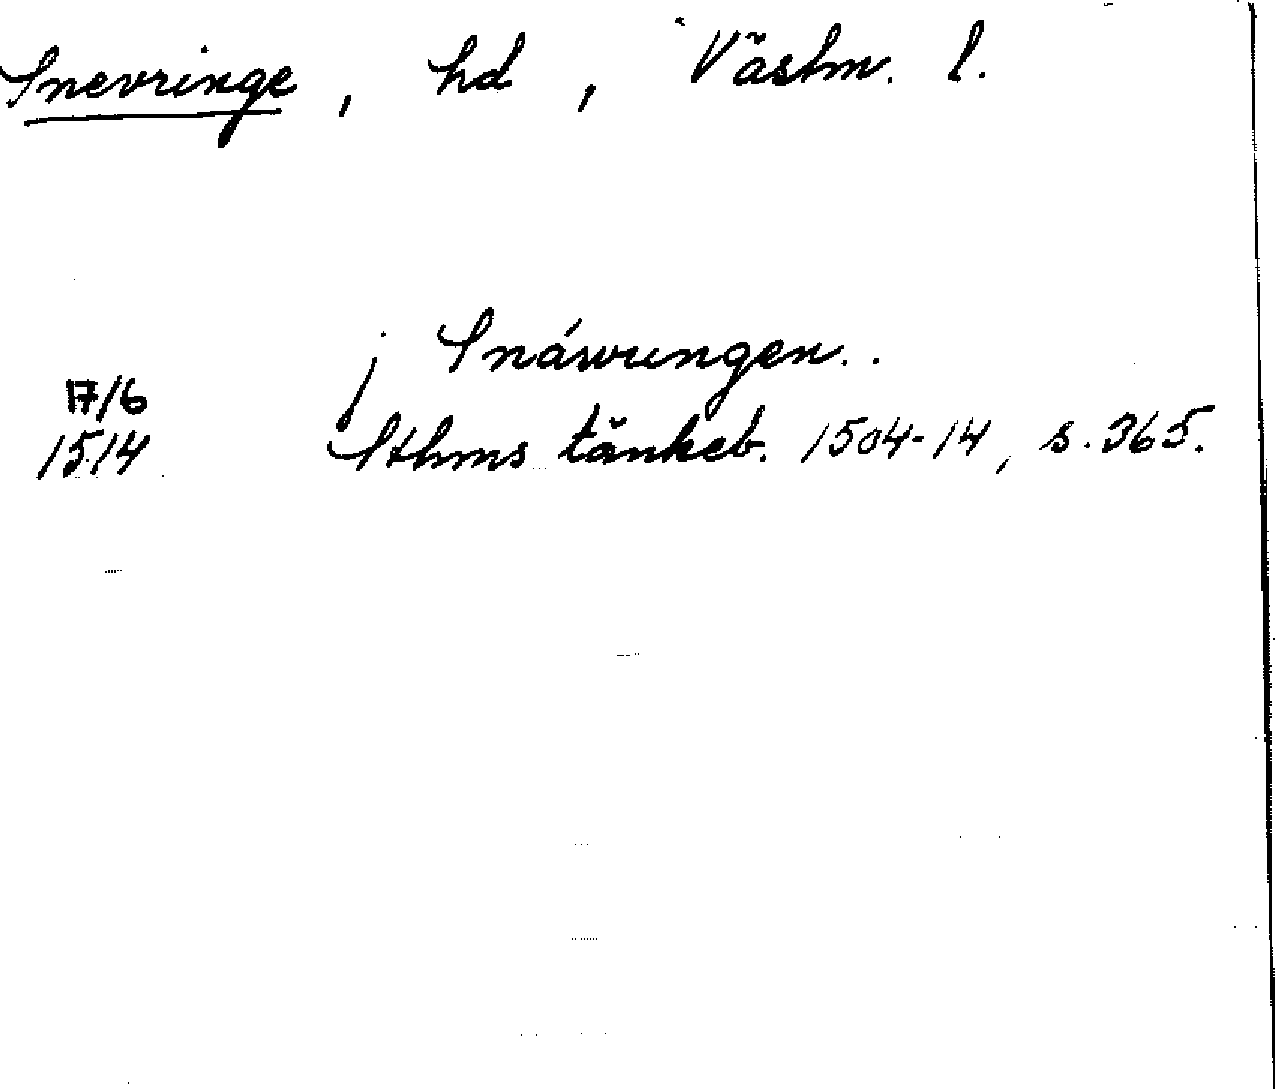 Snevringe, hd, Västm. l.
j Snáwrungen..
17/6
1514 Sthms tänkeb. 1504-14, s. 365.